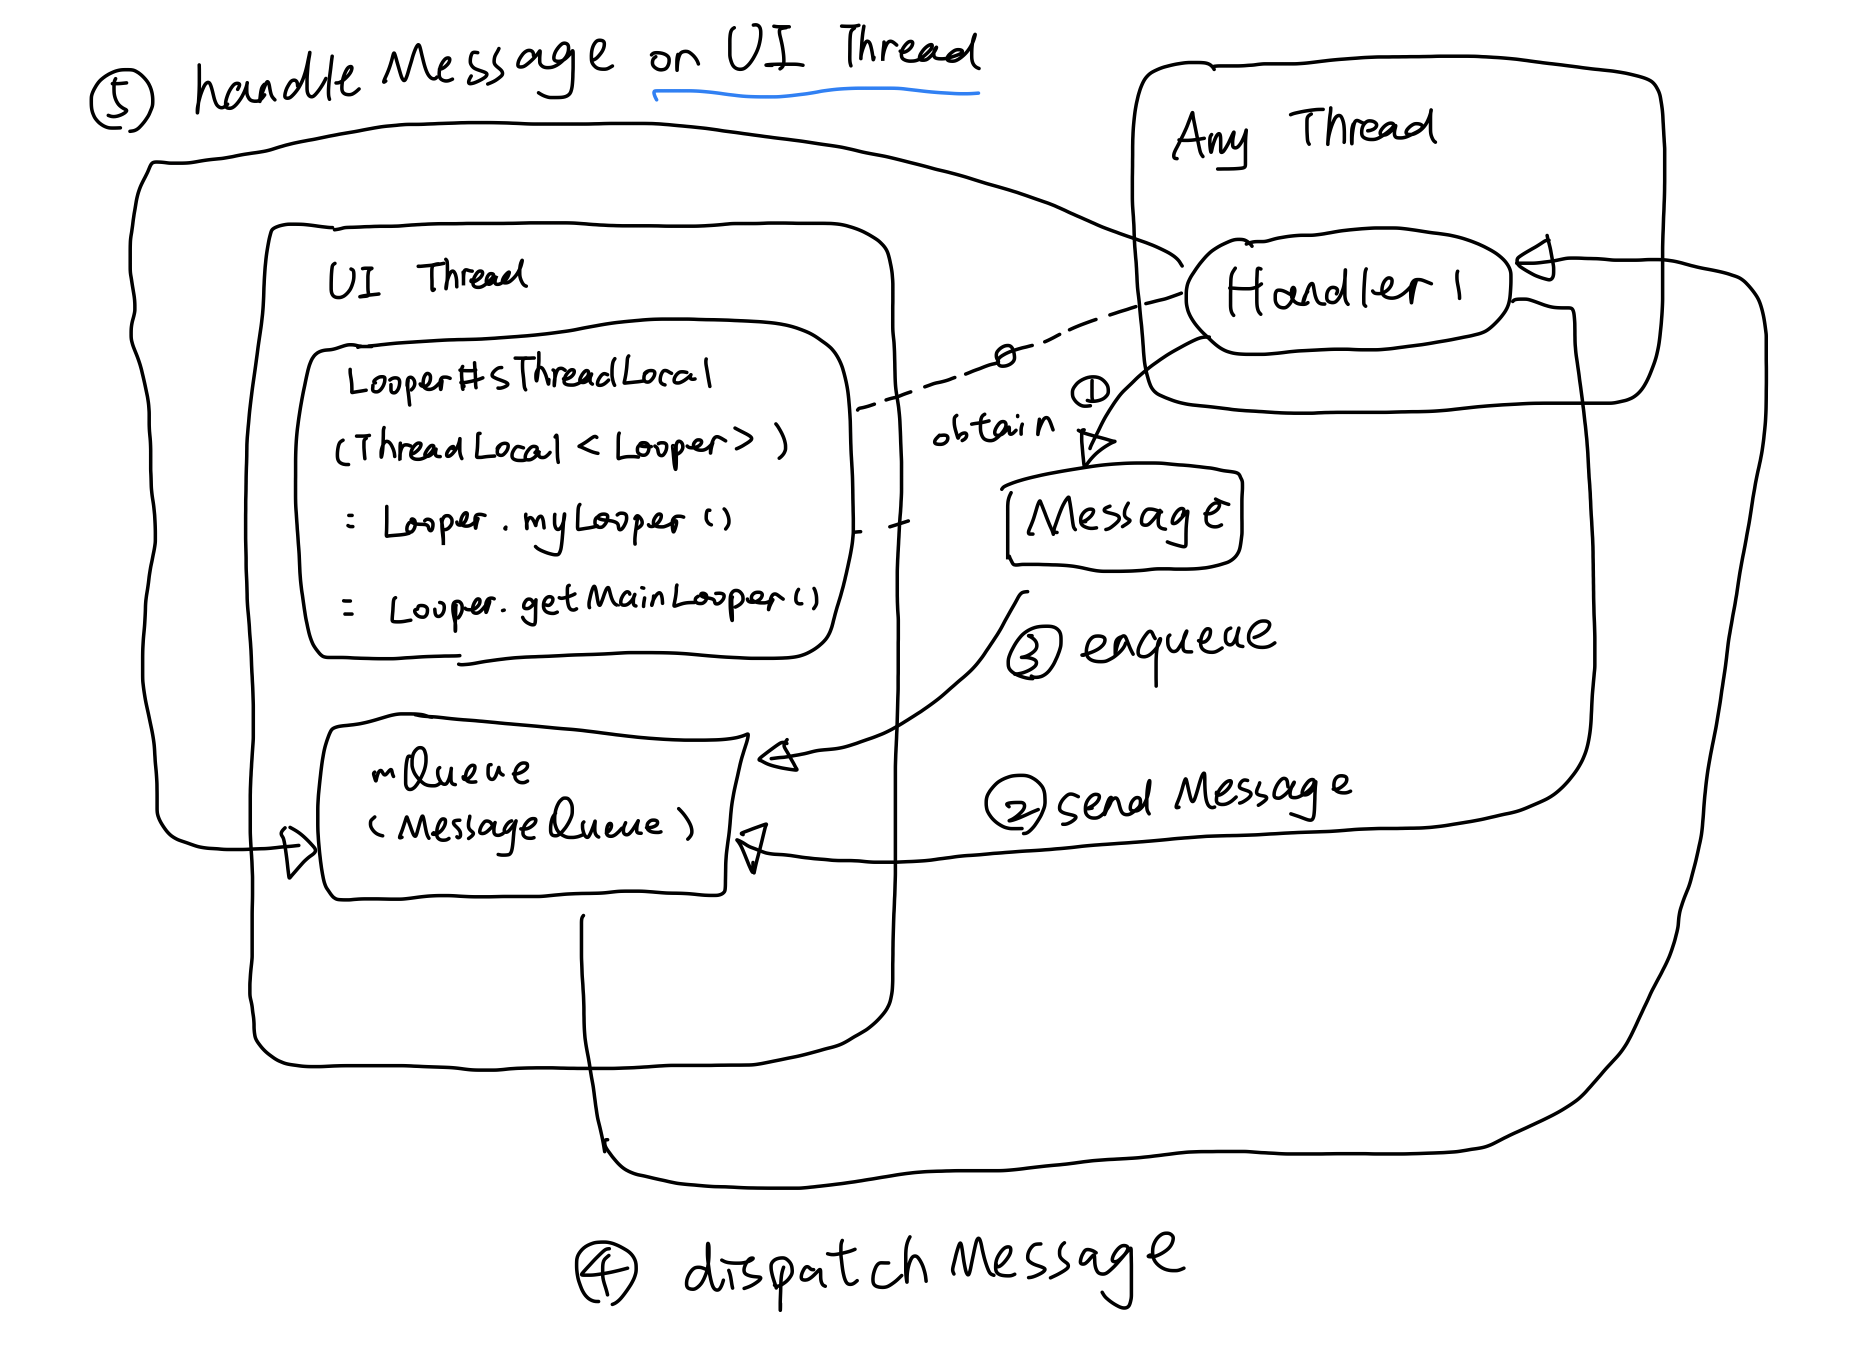 ⑤ handleMessage on UI Thread
Any Thread
UI Thread
Handler 1
Looper#sThreadLocal
(ThreadLocal<Looper>)
= Looper.myLooper()
= Looper.getMainLooper()
① obtain
Message
③ enqueue
mQueue
(MessageQueue)
② sendMessage
④ dispatchMessage